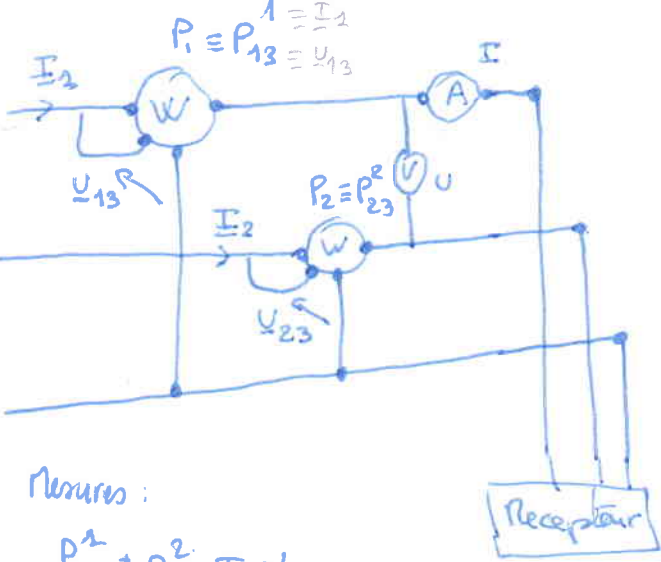 P₁ ≡ P₁₃¹ ≡ I₁
≡ U₁₃
I₁
I
W
A
U₁₃
P₂ ≡ P₂₃²
V
U
I₂
W
U₂₃
Mesures :
Recepteur
P¹ P²